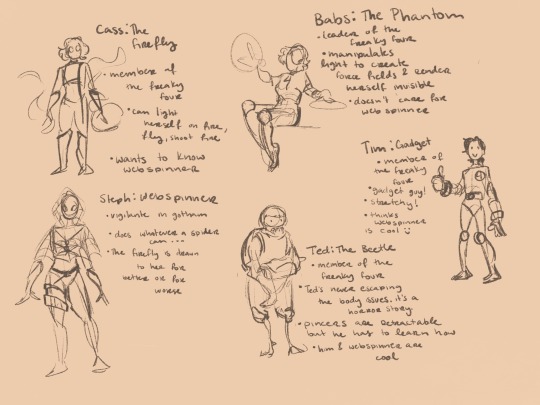 Cass: The
Firefly
• member of
the freaky
four
• can light
herself on fire,
fly, shoot fire
• wants to know
webspinner
Babs: The Phantom
• leader of the
freaky four
• manipulates
light to create
force fields & render
herself invisible
• doesn't care for
webspinner
Tim: Gadget
• member of
the freaky
four
• gadget guy!
• stretchy!
• thinks
webspinner
is cool :)
Steph: Webspinner
• vigilante in gotham
• does whatever a spider
can ...
• The firefly is drawn
to her for
better or for
worse
Ted: The Beetle
• member of the
freaky four
• Ted's never escaping
the body issues, it's a
horror story
• pincers are retractable
but he has to learn how
• him & webspinner are
cool